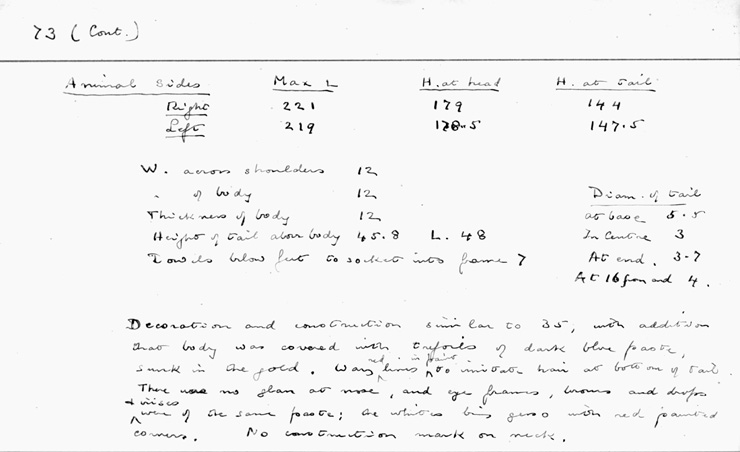 73 (Cont.)
Animal Sides Max L H. at head H. at tail
Right 221 179 144
Left 219 178.5 147.5
W. across shoulders 12
" of body 12
Thickness of body 12
Height of tail above body 45.8 L. 48
Dowels below feet to socket into frame 7
Diam. of tail
at base 5.5
In Centre 3
At end. 3.7
At 16 from end 4.
Decoration and construction similar to 35, with addition
that body was covered with trefoils of dark blue paste,
sunk in the gold. Wavy red lines in paint to imitate hair at bottom of tail.
There was no glass at nose, and eye frames, brows and drops
& irises were of the same paste; the whites being gesso with red painted
corners. No construction mark on neck.